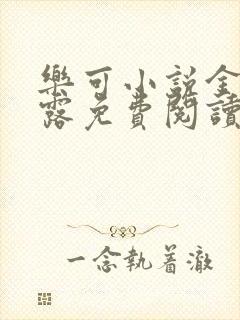 樂可小說全
露免費閱讀
一念執着澈